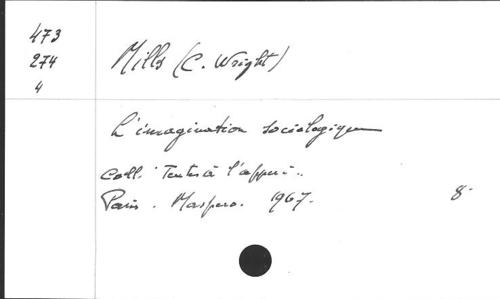 473
274
4
Mills (C. Wright)
L'imagination sociologique
Coll. Textes à l'appui.
Paris. Maspero. 1967.
8